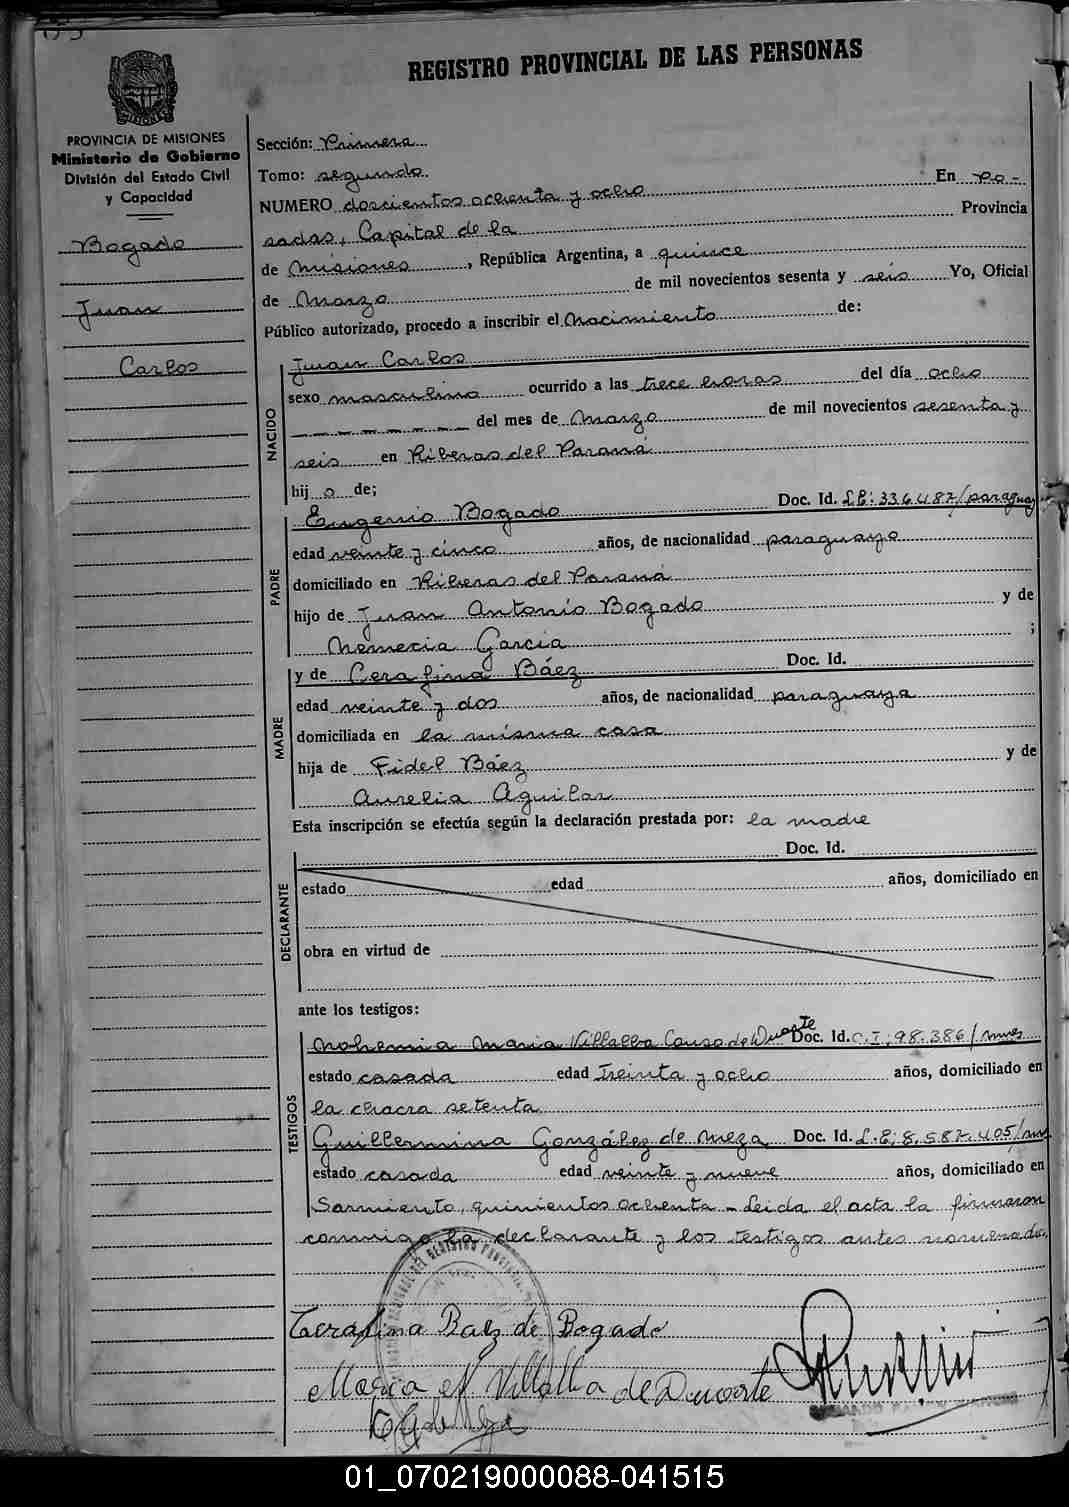 REGISTRO PROVINCIAL DE LAS PERSONAS
PROVINCIA DE MISIONES
Ministerio de Gobierno
División del Estado Civil
y Capacidad
Bogado
Juan
Carlos
Sección: Primera
Tomo: segundo
NUMERO doscientos ochenta y ocho En Po-
sadas, Capital de la Provincia
de Misiones, República Argentina, a quince
de Marzo de mil novecientos sesenta y seis Yo, Oficial
Público autorizado, procedo a inscribir el Nacimiento de:
NACIDO
Juan Carlos
sexo masculino ocurrido a las trece horas del día ocho
del mes de Marzo de mil novecientos sesenta y
seis en Riberas del Paraná
hijo de;
PADRE
Eugenio Bogado Doc. Id. L.E: 336.487/paraguay
edad veinte y cinco años, de nacionalidad paraguayo
domiciliado en Riberas del Paraná
hijo de Juan Antonio Bogado y de
Nemecia García ;
MADRE
y de Cerafina Báez Doc. Id.
edad veinte y dos años, de nacionalidad paraguaya
domiciliada en la misma casa
hija de Fidel Báez y de
Aurelia Aguilar
Esta inscripción se efectúa según la declaración prestada por: la madre
DECLARANTE
Doc. Id.
estado edad años, domiciliado en
obra en virtud de
ante los testigos:
TESTIGOS
Nohemia Maria Villalba Couso de Duarte Doc. Id. C.I; 98.386/mnes
estado casada edad treinta y ocho años, domiciliado en
la chacra setenta
Guillermina González de Meza Doc. Id. L.E; 8.587.405/mn
estado casada edad veinte y nueve años, domiciliado en
Sarmiento, quinientos ochenta - Leida el acta la firmaron
conmigo la declarante y los testigos antes nomenado.
Cerafina Baez de Bogado
Maria N Villalba de Duarte
01_070219000088-041515